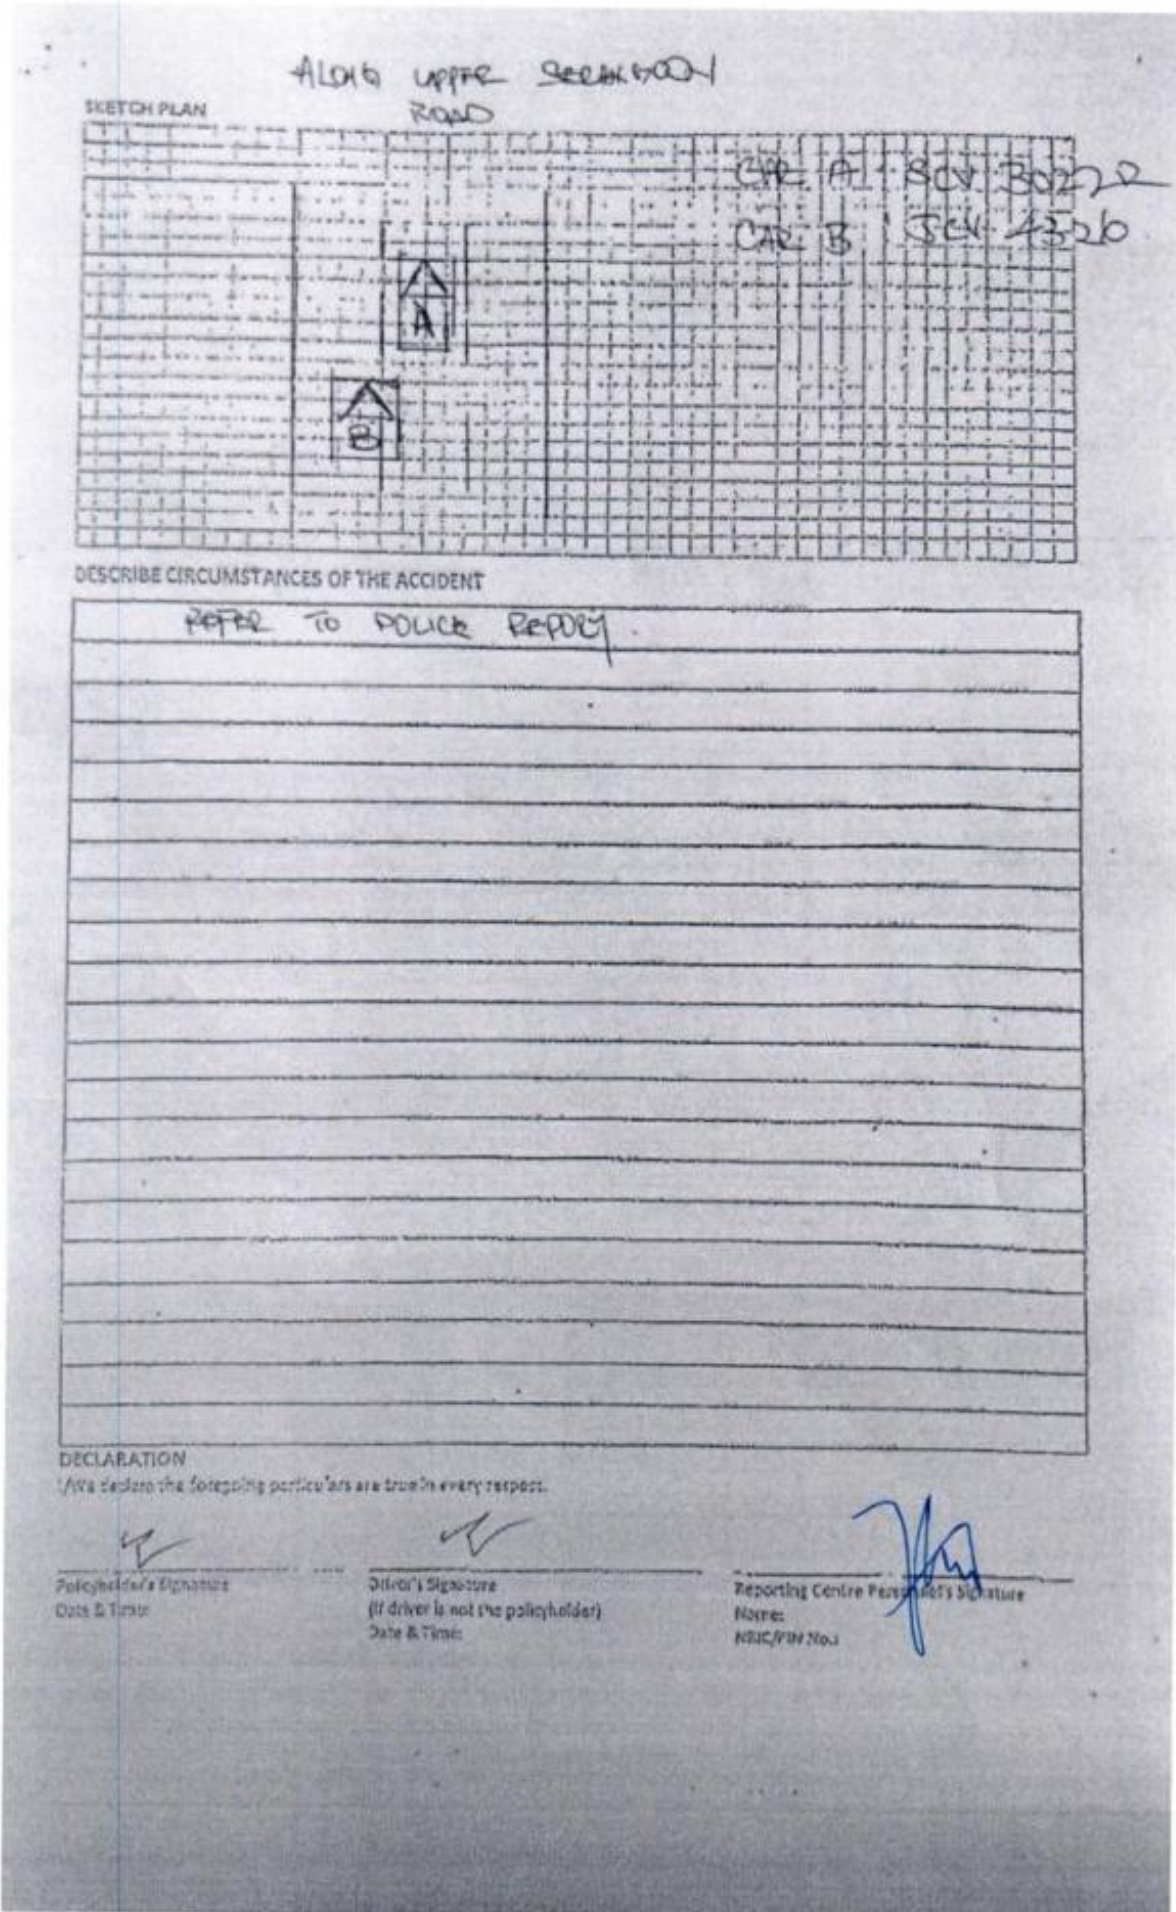 ALONG UPPER SERANGOON
ROAD
SKETCH PLAN
CAR A SCV 3022R
CAR B 4320
A
B
DESCRIBE CIRCUMSTANCES OF THE ACCIDENT
REFER TO POLICE REPORT.
DECLARATION
I/We declare the foregoing particulars are true in every respect.
Policyholder's Signature
Date & Time:
Driver's Signature
(If driver is not the policyholder)
Date & Time:
Reporting Centre Personnel's Signature
Name:
NRIC/FIN No.: